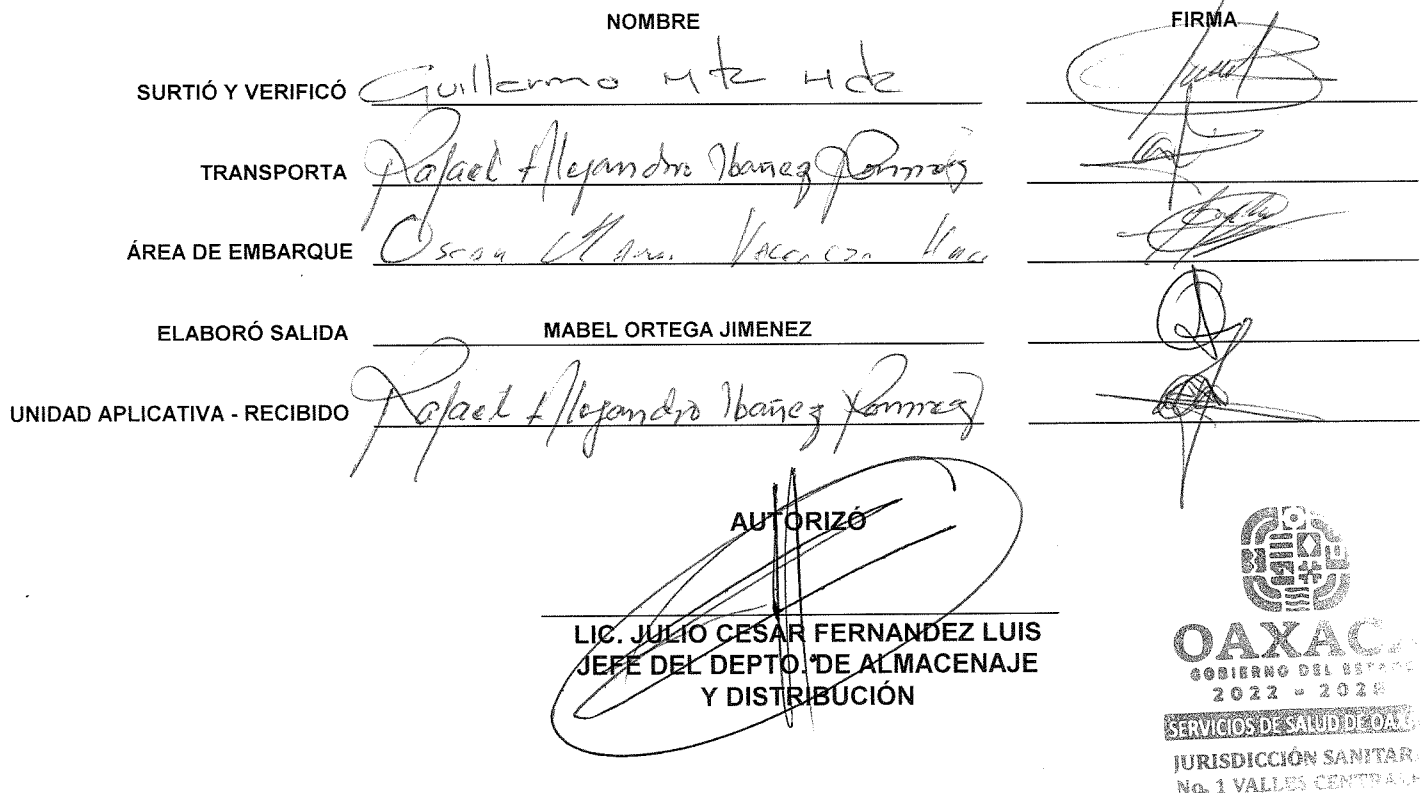 NOMBRE FIRMA
SURTIÓ Y VERIFICÓ Guillermo Mtz Hdz
TRANSPORTA Rafael Alejandro Ibañez Ramirez
ÁREA DE EMBARQUE Oscar
ELABORÓ SALIDA MABEL ORTEGA JIMENEZ
UNIDAD APLICATIVA - RECIBIDO Rafael Alejandro Ibañez Ramirez
AUTORIZÓ
LIC. JULIO CESAR FERNANDEZ LUIS
JEFE DEL DEPTO. DE ALMACENAJE
Y DISTRIBUCIÓN
OAXAC
GOBIERNO DEL ESTADO
2022 - 2028
SERVICIOS DE SALUD DE OAXA
JURISDICCIÓN SANITAR
No. 1 VALLES CENTRALE